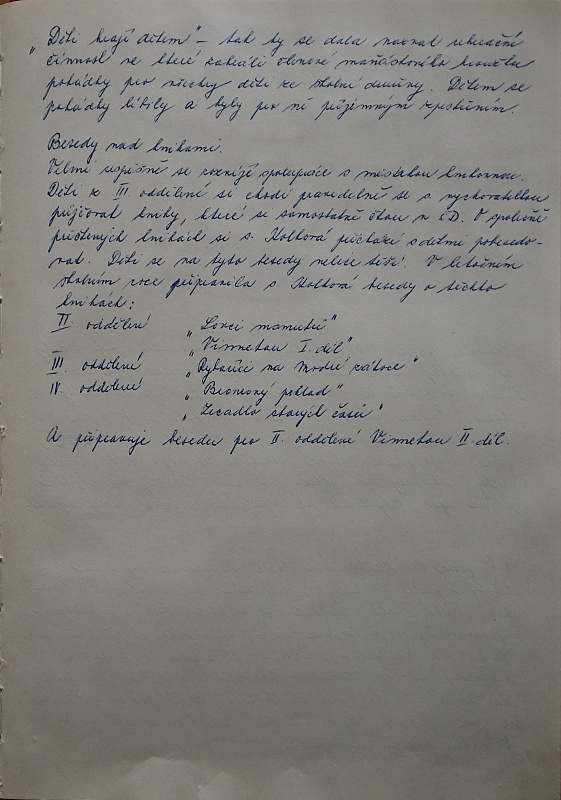 „Děti hrají dětem" – tak by se dala nazvat rekreační
činnost ve které zahráli členové maňáskového kroužku
pohádky pro všechny děti ze školní družiny. Dětem se
pohádky líbily a byly pro ně příjemným zpestřením.
Besedy nad knihami.
Velmi úspěšně se rozvíjí spolupráce s místní knihovnou.
Děti z III oddělení si chodí pravidelně se s. vychovatelkou
půjčovat knihy, které si samostatně čtou v ŠD. O společně
přečtených knihách si s. Holková přichází s dětmi pobesedo-
vat. Děti se na tyto besedy velice těší. V letošním
školním roce připravila s. Holková besedy o těchto
knihách:
II. oddělení „Lovci mamutů"
„Vinnetou I. díl"
III. oddělení „Rybáříci na Modré zátoce"
IV. oddělení „Bronzový poklad"
„Zrcadlo starých časů"
A připravuje besedu pro II. oddělení Vinnetou II. díl.